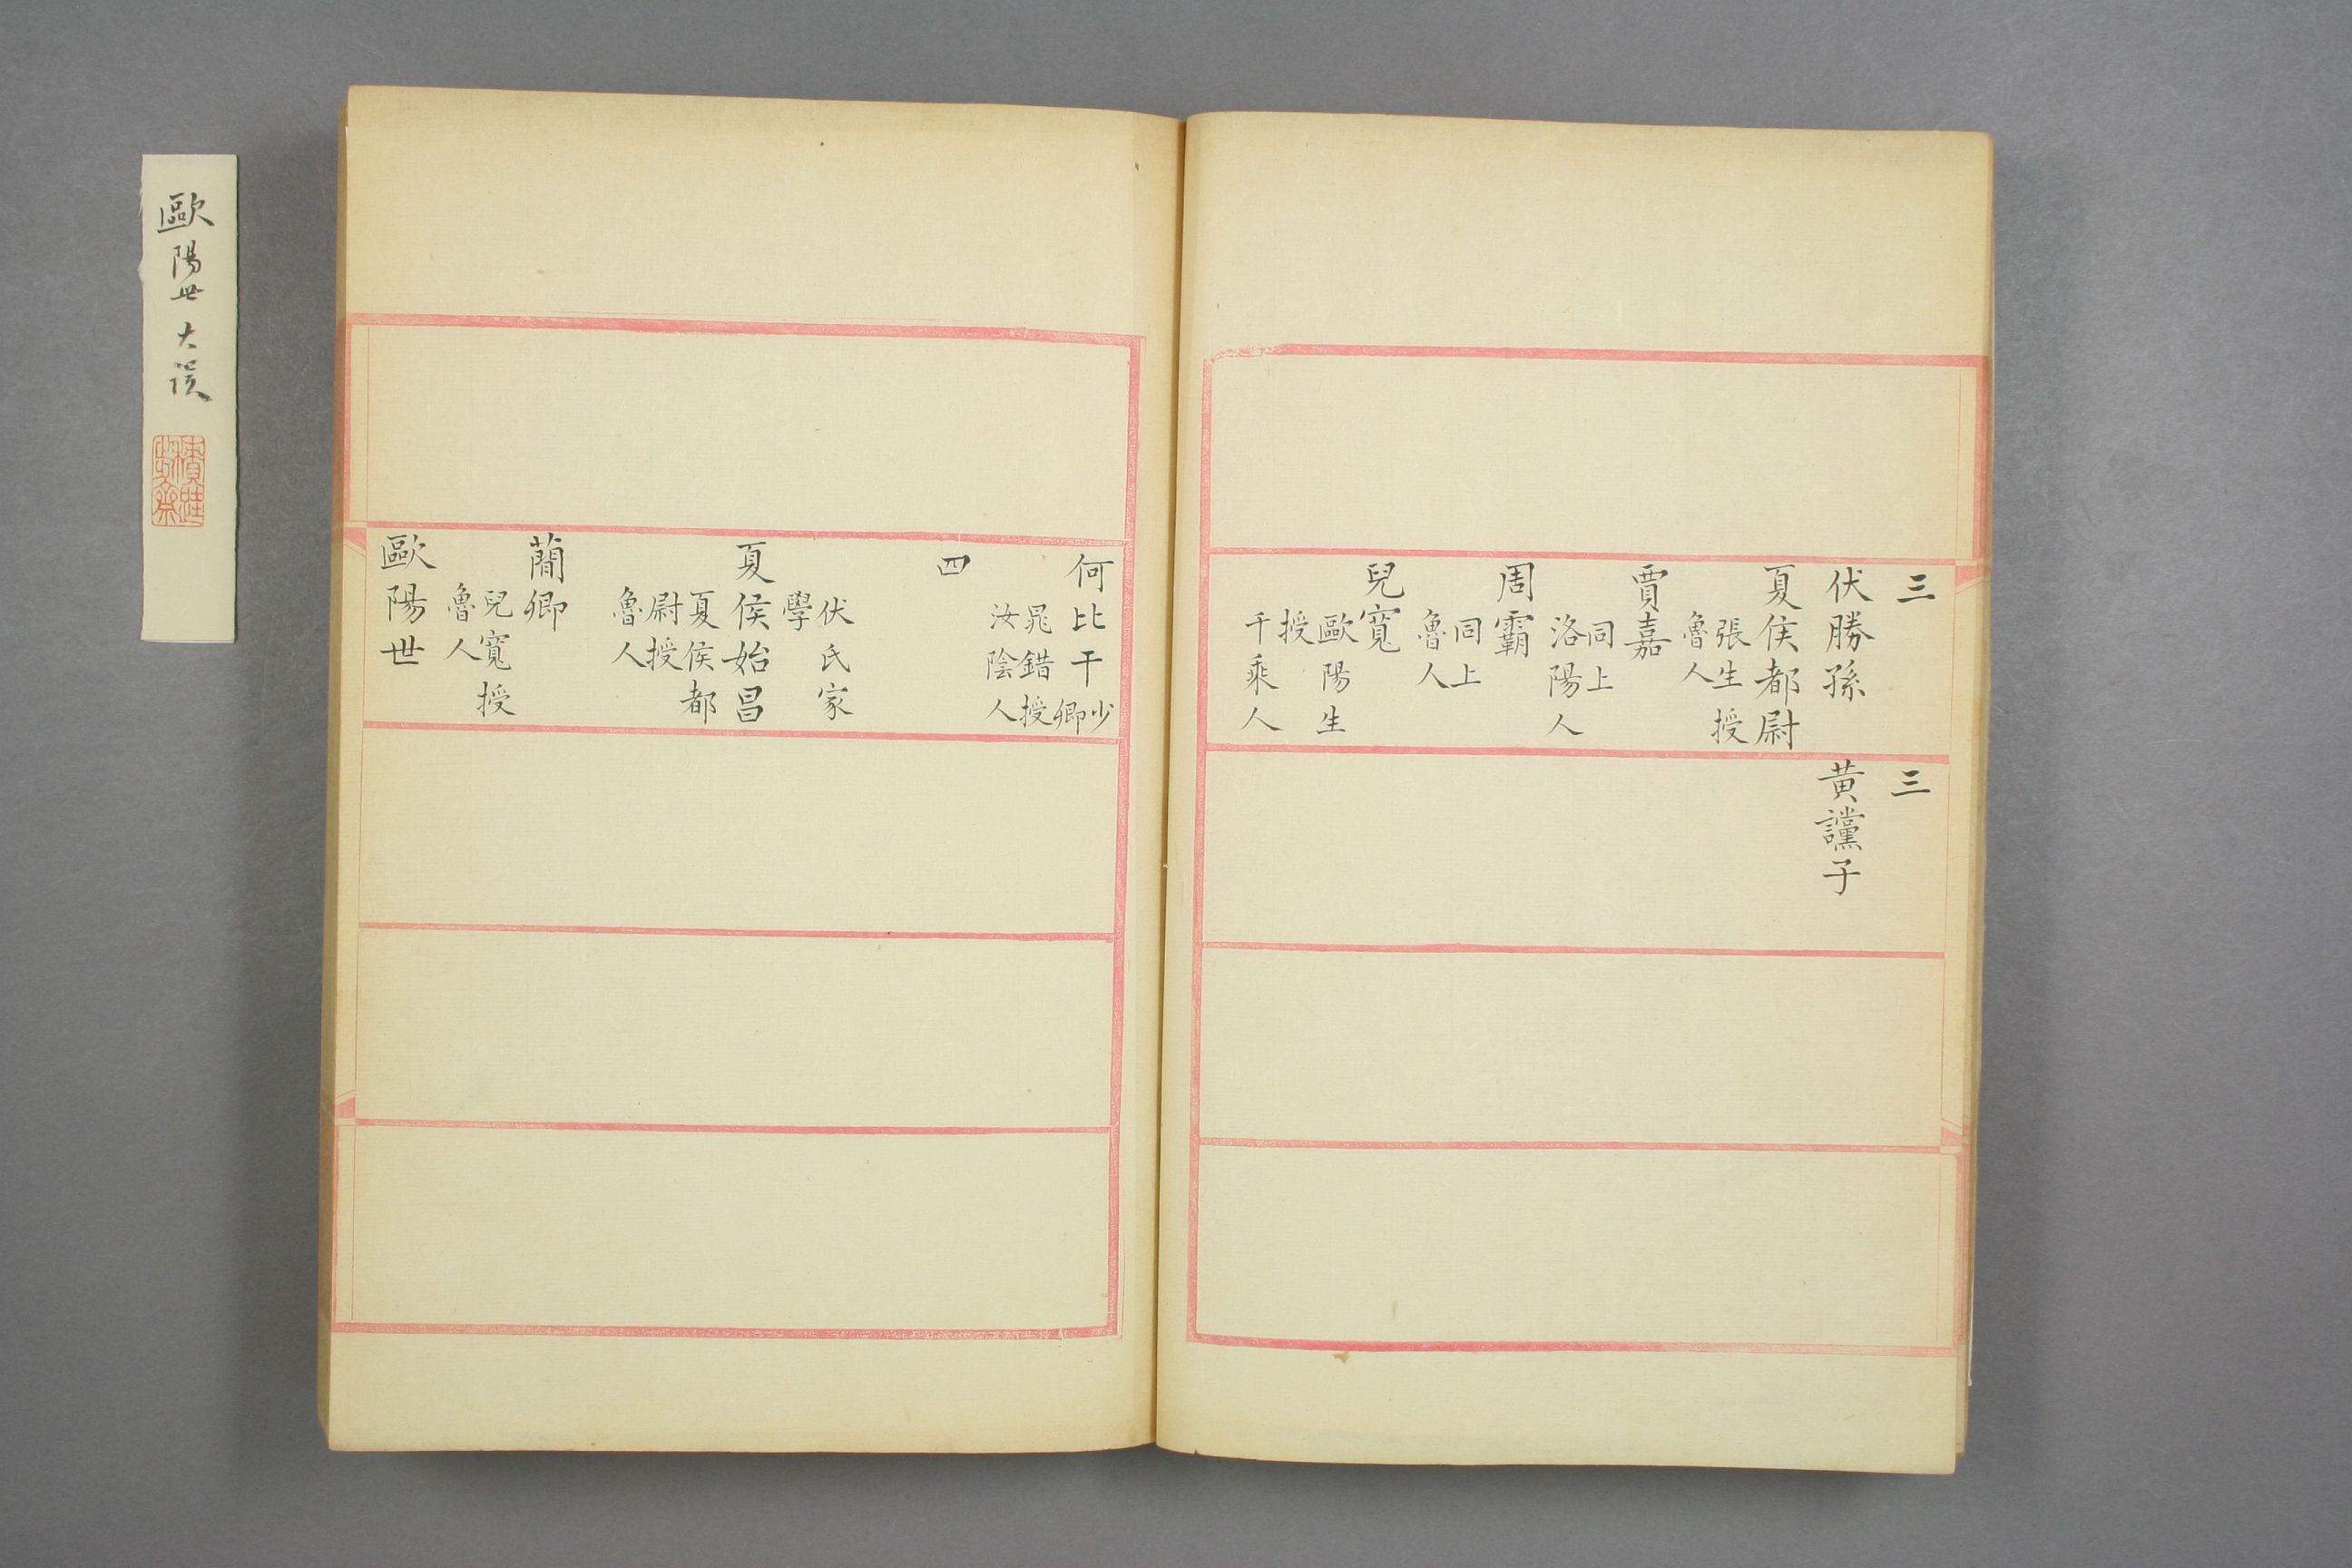 三
伏勝孫
夏侯都尉
張生授
魯人
賈嘉
同上
洛陽人
周霸
同上
魯人
兒寬
歐陽生
授
千乘人
三
黃讜子
何比干少
卿
晁錯授
汝陰人
四
伏氏家
學
夏侯始昌
夏侯都
尉授
魯人
蕳卿
兒寬授
魯人
歐陽世
歐陽世大誤